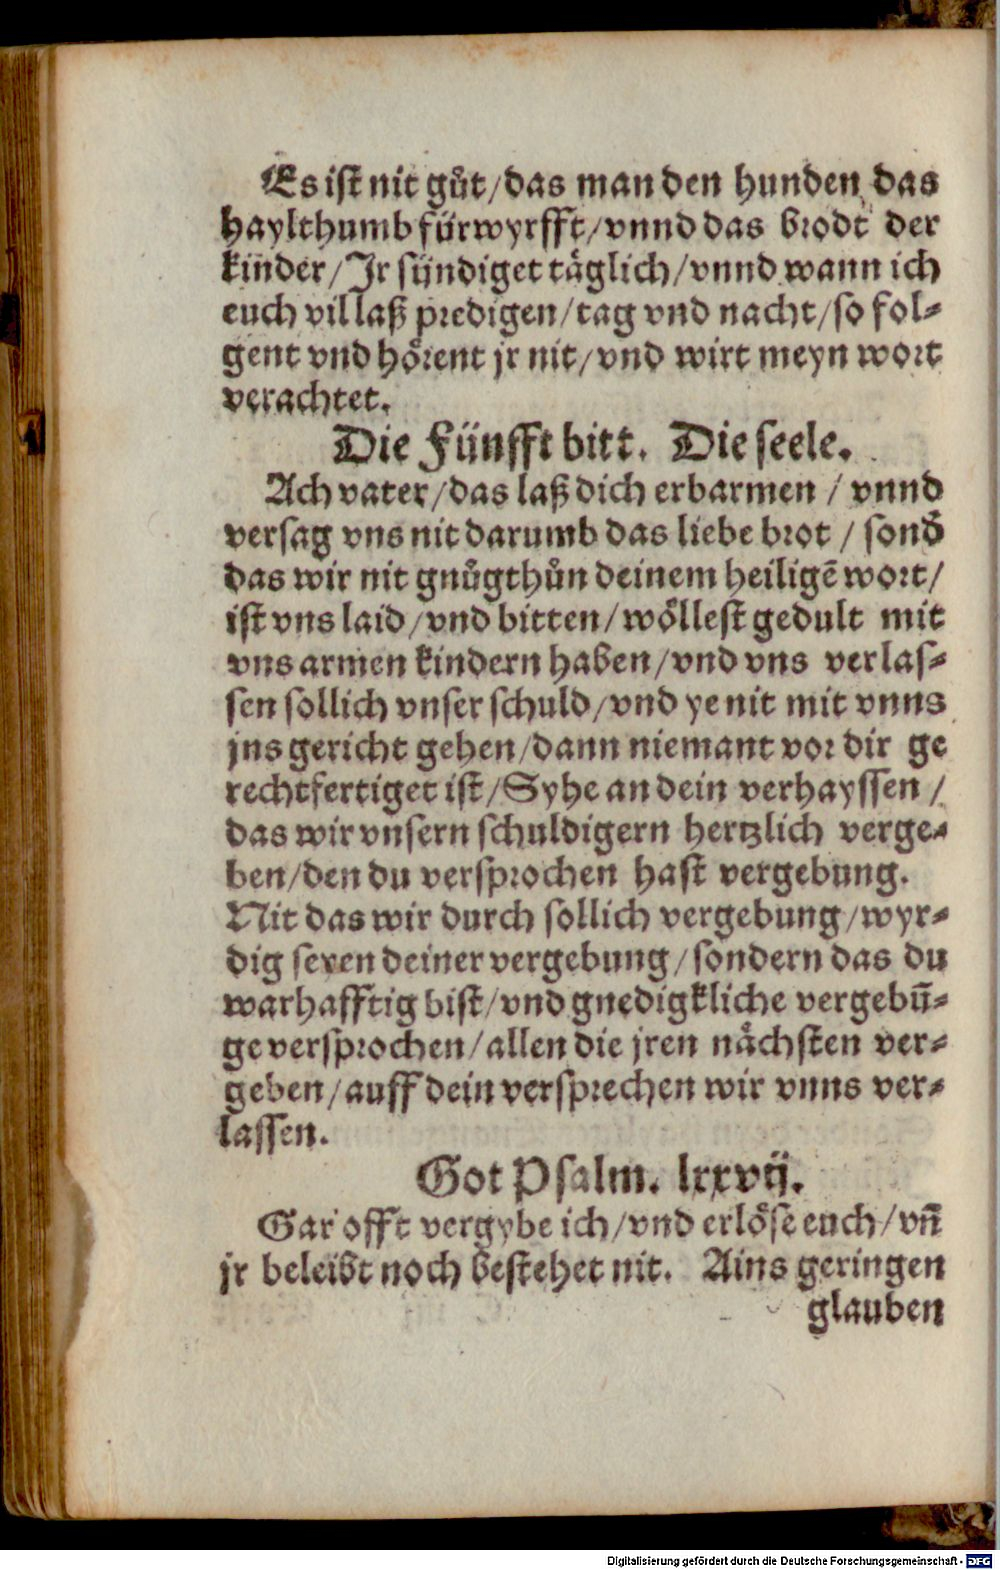 Es ist nit gůt/das man den hunden das
haylthumb fürwyrfft/vnnd das brodt der
kinder/Ir sündiget täglich/vnnd wann ich
euch vil laß predigen/tag vnd nacht/so fol-
gent vnd hörent jr nit/vnd wirt meyn wort
verachtet.
Die Fünfft bitt. Die seele.
Ach vater/das laß dich erbarmen / vnnd
versag vns nit darumb das liebe brot / sond̄
das wir nit gnůgthůn deinem heiligē wort/
ist vns laid/vnd bitten/wöllest gedult mit
vns armen kindern haben/vnd vns verlas-
sen sollich vnser schuld/vnd ye nit mit vnns
jns gericht gehen/dann niemant vor dir ge
rechtfertiget ist/Syhe an dein verhayssen /
das wir vnsern schuldigern hertzlich verge-
ben/den du versprochen hast vergebung.
Nit das wir durch sollich vergebung/wyr-
dig seyen deiner vergebung/sondern das du
warhafftig bist/vnd gnedigkliche vergebū-
ge versprochen/allen die jren nächsten ver-
geben/auff dein versprechen wir vnns ver-
lassen.
Got Psalm. lxxvij.
Gar offt vergybe ich/vnd erlöse euch/vn̄
jr beleibt noch bestehet nit. Ains geringen
glauben
Digitalisierung gefördert durch die Deutsche Forschungsgemeinschaft - DFG